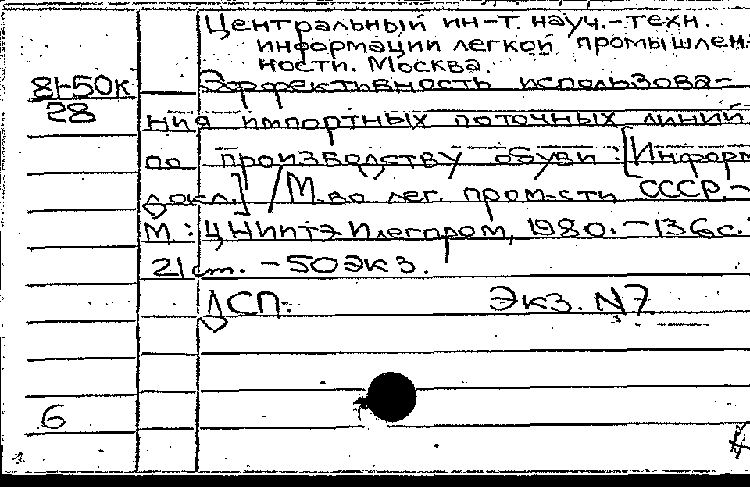 Центральный ин-т. науч.-техн.
информации легкой промышлен-
ности. Москва.
81-50к Эффективность использова-
28
ния импортных поточных линий
по производству обуви: [Информ.
докл.] / М-во лег. пром-сти СССР.-
М.: ЦНИИТЭИлегпром, 1980. - 136с.
21 см. - 50 экз.
ДСП. Экз. N7
6